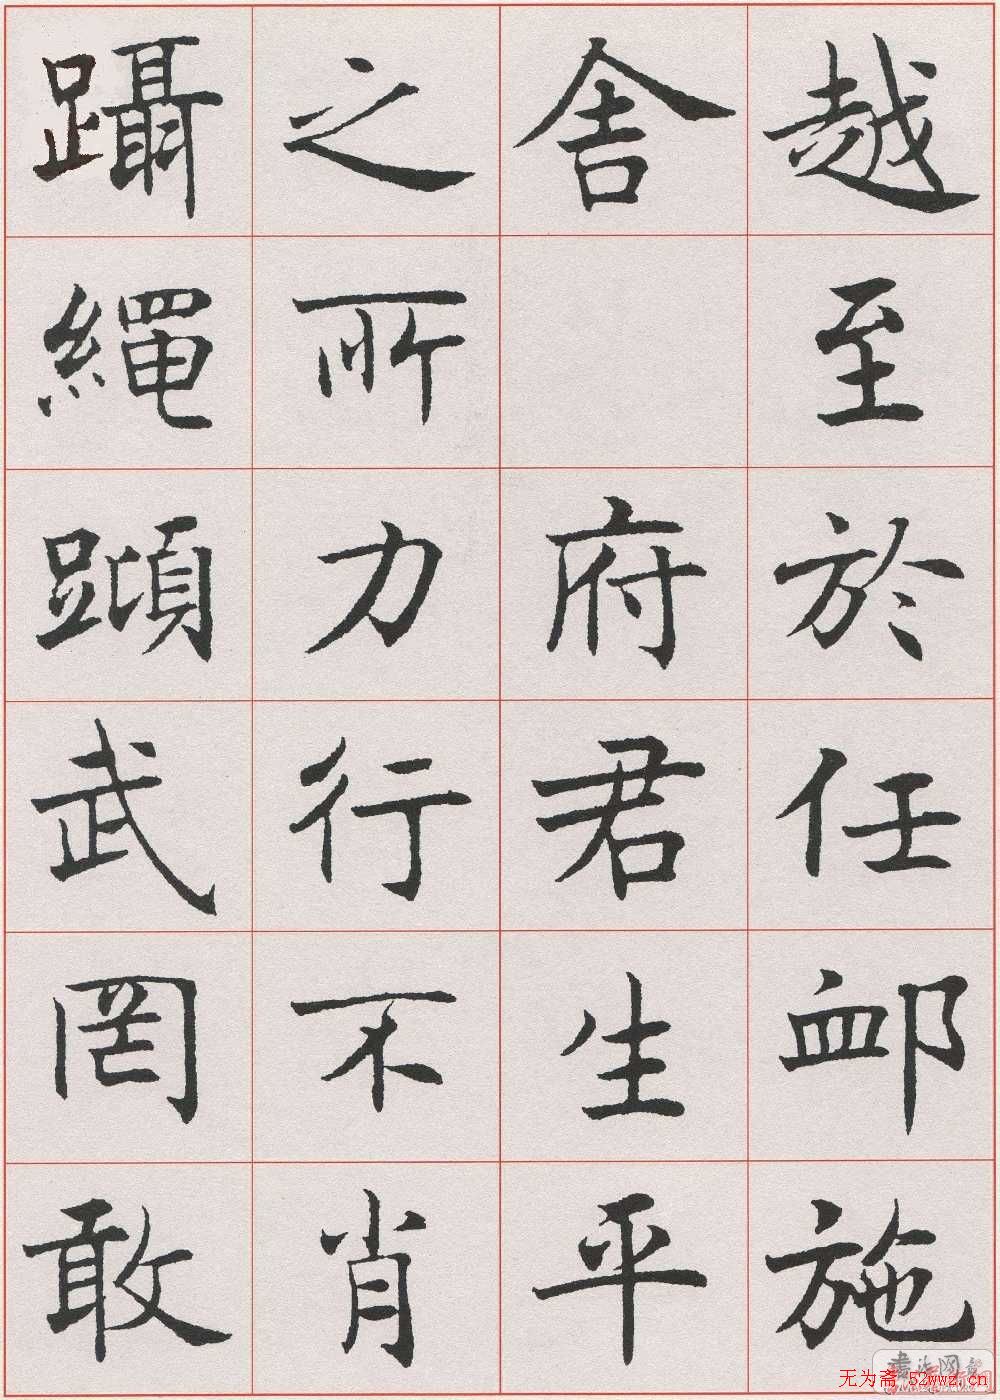 越至於任卹施
舍府君生平
之所力行不肖
躡繩蹞武罔敢
无为斋 52wwz.cn